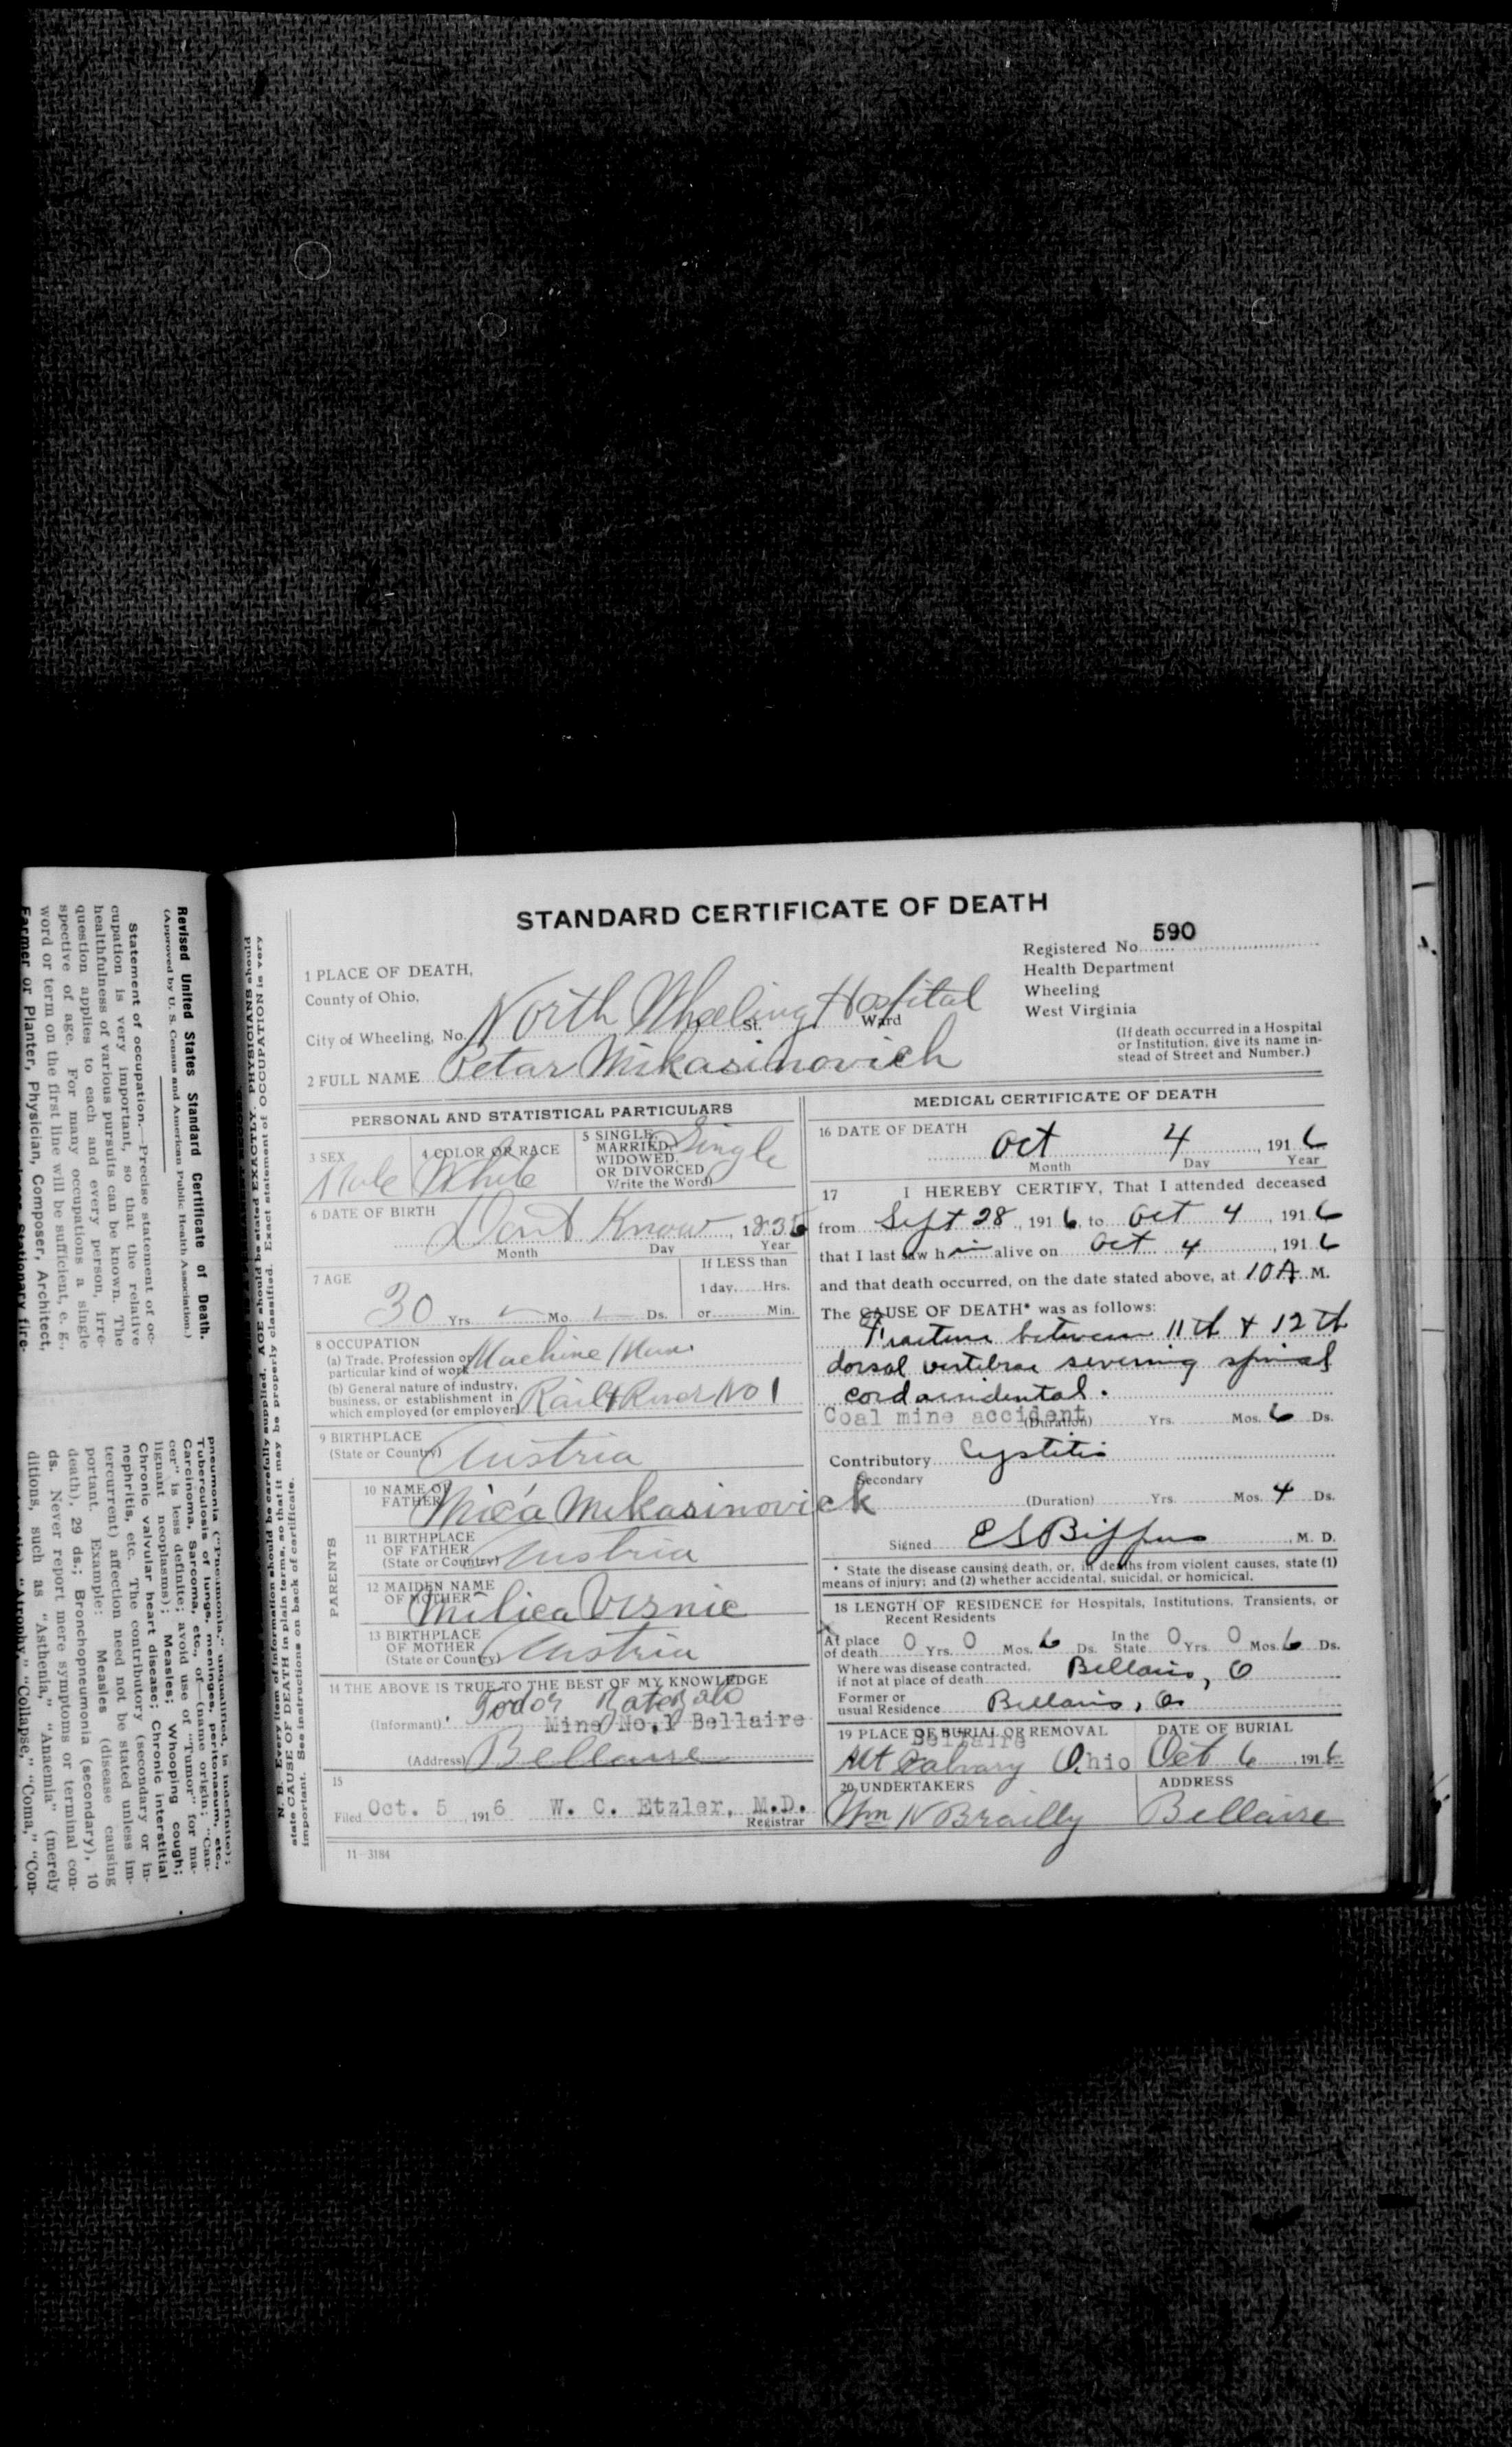 Revised United States Standard Certificate of Death.
(Approved by U. S. Census and American Public Health Association.)
Statement of occupation.—Precise statement of oc-
cupation is very important, so that the relative
healthfulness of various pursuits can be known. The
question applies to each and every person, irre-
spective of age. For many occupations a single
word or term on the first line will be sufficient, e. g.,
Farmer or Planter, Physician, Composer, Architect,
Stationary fire-
pneumonia ("Pneumonia," unqualified, is indefinite);
Tuberculosis of lungs, meninges, peritonaeum, etc.,
Carcinoma, Sarcoma, etc., of—(name origin; "Can-
cer" is less definite; avoid use of "Tumor" for ma-
lignant neoplasms); Measles; Whooping cough;
Chronic valvular heart disease; Chronic interstitial
nephritis, etc. The contributory (secondary or in-
tercurrent) affection need not be stated unless im-
portant. Example: Measles (disease causing
death), 29 ds.; Bronchopneumonia (secondary), 10
ds. Never report mere symptoms or terminal con-
ditions, such as "Asthenia," "Anaemia" (merely
"Atrophy," "Collapse," "Coma," "Con-
N. B. Every item of information should be carefully supplied. AGE should be stated EXACTLY. PHYSICIANS should
state CAUSE OF DEATH in plain terms, so that it may be properly classified. Exact statement of OCCUPATION is very
important. See instructions on back of certificate.
STANDARD CERTIFICATE OF DEATH
Registered No. 590
Health Department
Wheeling
West Virginia
(If death occurred in a Hospital
or Institution, give its name in-
stead of Street and Number.)
1 PLACE OF DEATH,
County of Ohio,
City of Wheeling, No. North Wheeling Hospital St. Ward
2 FULL NAME Petar Mikasinovich
PERSONAL AND STATISTICAL PARTICULARS
3 SEX
Male
4 COLOR OR RACE
White
5 SINGLE,
MARRIED,
WIDOWED,
OR DIVORCED
Write the Word)
Single
6 DATE OF BIRTH
Dont Know, 1836
Month Day Year
7 AGE
30 Yrs. — Mo. — Ds.
If LESS than
1 day Hrs.
or Min.
8 OCCUPATION
(a) Trade, Profession or
particular kind of work Machine Man
(b) General nature of industry,
business, or establishment in
which employed (or employer) Rail & River No 1
9 BIRTHPLACE
(State or Country) Austria
PARENTS
10 NAME OF
FATHER Mica Mikasinovick
11 BIRTHPLACE
OF FATHER
(State or Country) Austria
12 MAIDEN NAME
OF MOTHER Milica Visnic
13 BIRTHPLACE
OF MOTHER
(State or Country) Austria
14 THE ABOVE IS TRUE TO THE BEST OF MY KNOWLEDGE
(Informant) Todor
Mine No. 1 Bellaire
(Address) Bellaire
15
Filed Oct. 5 1916 W. C. Etzler, M.D.
Registrar
11—3184
MEDICAL CERTIFICATE OF DEATH
16 DATE OF DEATH
Oct 4, 1916
Month Day Year
17 I HEREBY CERTIFY, That I attended deceased
from Sept 28, 1916, to Oct 4, 1916
that I last saw him alive on Oct 4, 1916
and that death occurred, on the date stated above, at 10 A M.
The CAUSE OF DEATH* was as follows:
Fracture between 11th & 12th
dorsal vertebrae severing spinal
cord accidental.
Coal mine accident (Duration) Yrs. Mos. 6 Ds.
Contributory Cystitis
Secondary
(Duration) Yrs. Mos. 4 Ds.
Signed M. D.
* State the disease causing death, or, in deaths from violent causes, state (1)
means of injury; and (2) whether accidental, suicidal, or homicical.
18 LENGTH OF RESIDENCE for Hospitals, Institutions, Transients, or
Recent Residents
At place
of death 0 Yrs. 0 Mos. 6 Ds. In the
State 0 Yrs. 0 Mos. 6 Ds.
Where was disease contracted,
if not at place of death Bellaire, O
Former or
usual Residence Bellaire, O.
19 PLACE OF BURIAL OR REMOVAL
Bellaire
Mt Calvary Ohio
DATE OF BURIAL
Oct 6 1916
20 UNDERTAKERS
Wm N Brailly
ADDRESS
Bellaire